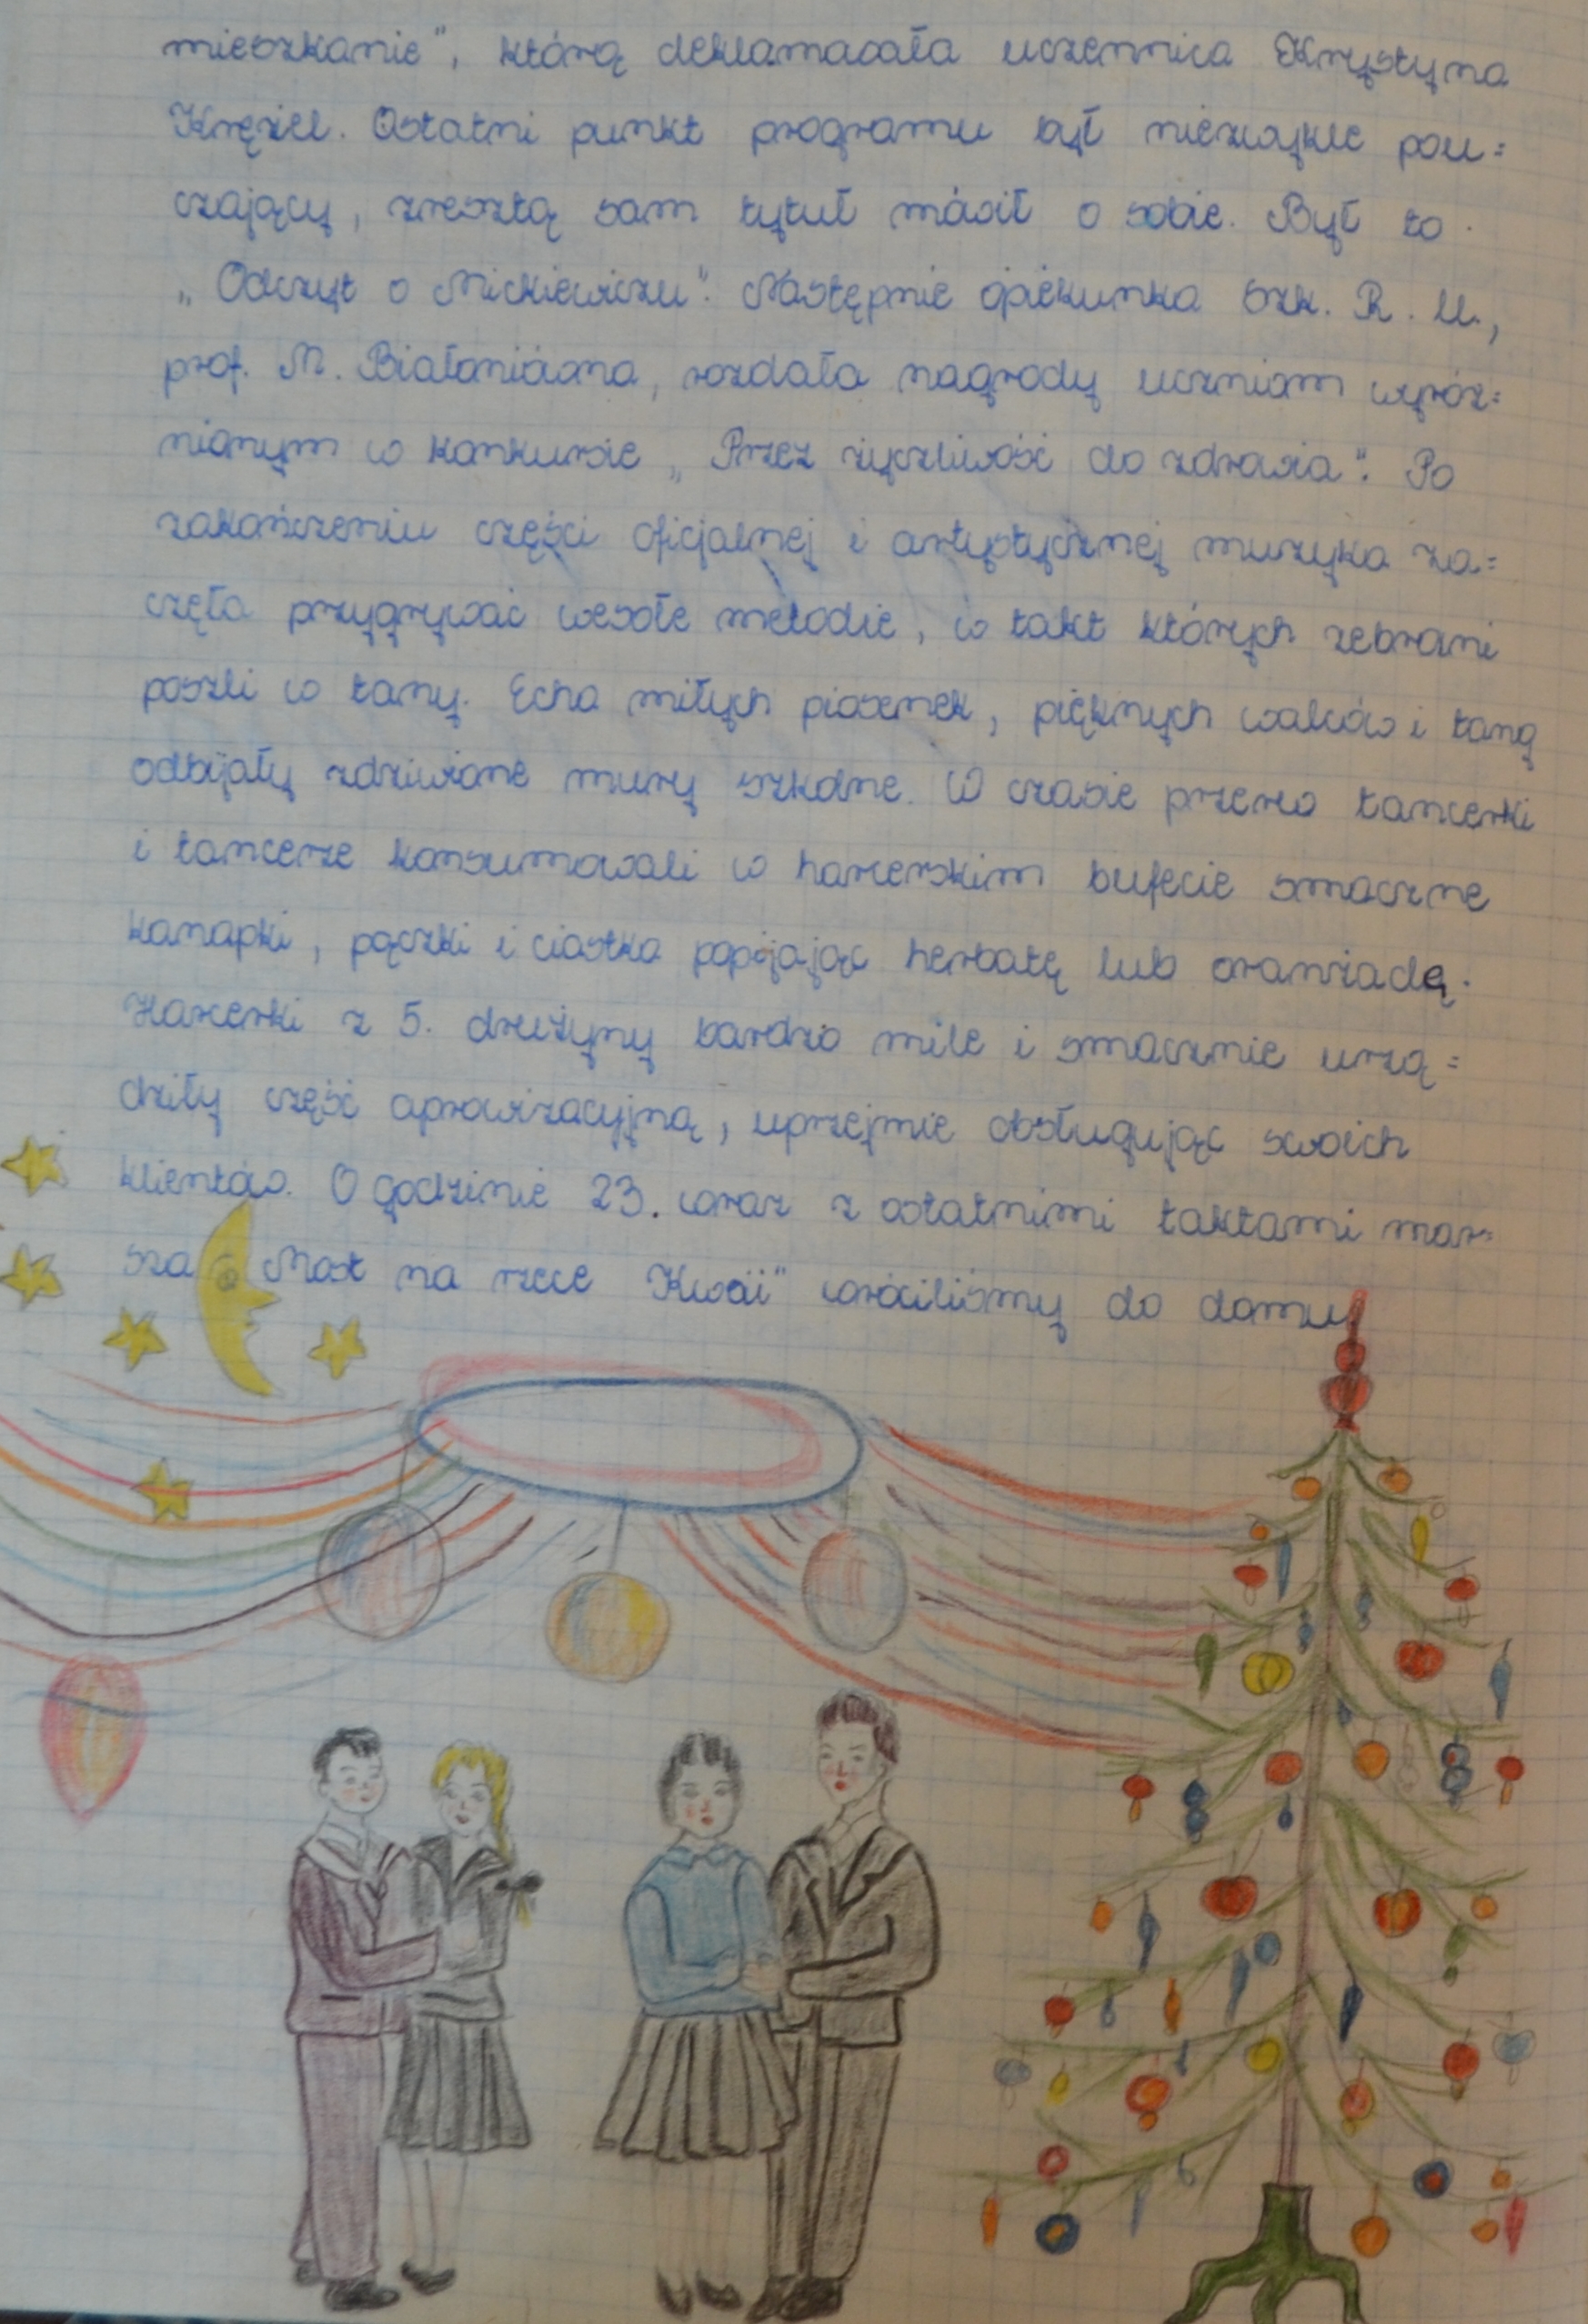 mieszkanie", którą deklamowała uczennica Krystyna
Kręziel. Ostatni punkt programu był niezwykle pou=
czający, zresztą sam tytuł mówił o sobie. Był to
„Odczyt o Mickiewiczu". Następnie opiekunka Szk. R. U.,
prof. M. Białoniówna, rozdała nagrody uczniom wyróż=
nionym w konkursie „Przez życzliwość do zdrowia". Po
zakończeniu części oficjalnej i artystycznej muzyka za=
częła przygrywać wesołe melodie, w takt których zebrani
poszli w tany. Echa miłych piosenek, pięknych walców i tang
odbijały zdziwione mury szkolne. W czasie przerw tancerki
i tancerze konsumowali w harcerskim bufecie smaczne
kanapki, pączki i ciastka popijając herbatę lub oranżadę.
Harcerki z 5. drużyny bardzo mile i smacznie urzą=
dziły część aprowizacyjną, uprzejmie obsługując swoich
klientów. O godzinie 23. wraz z ostatnimi taktami mar=
sza „Most na rzece Kwaii" wróciliśmy do domu.